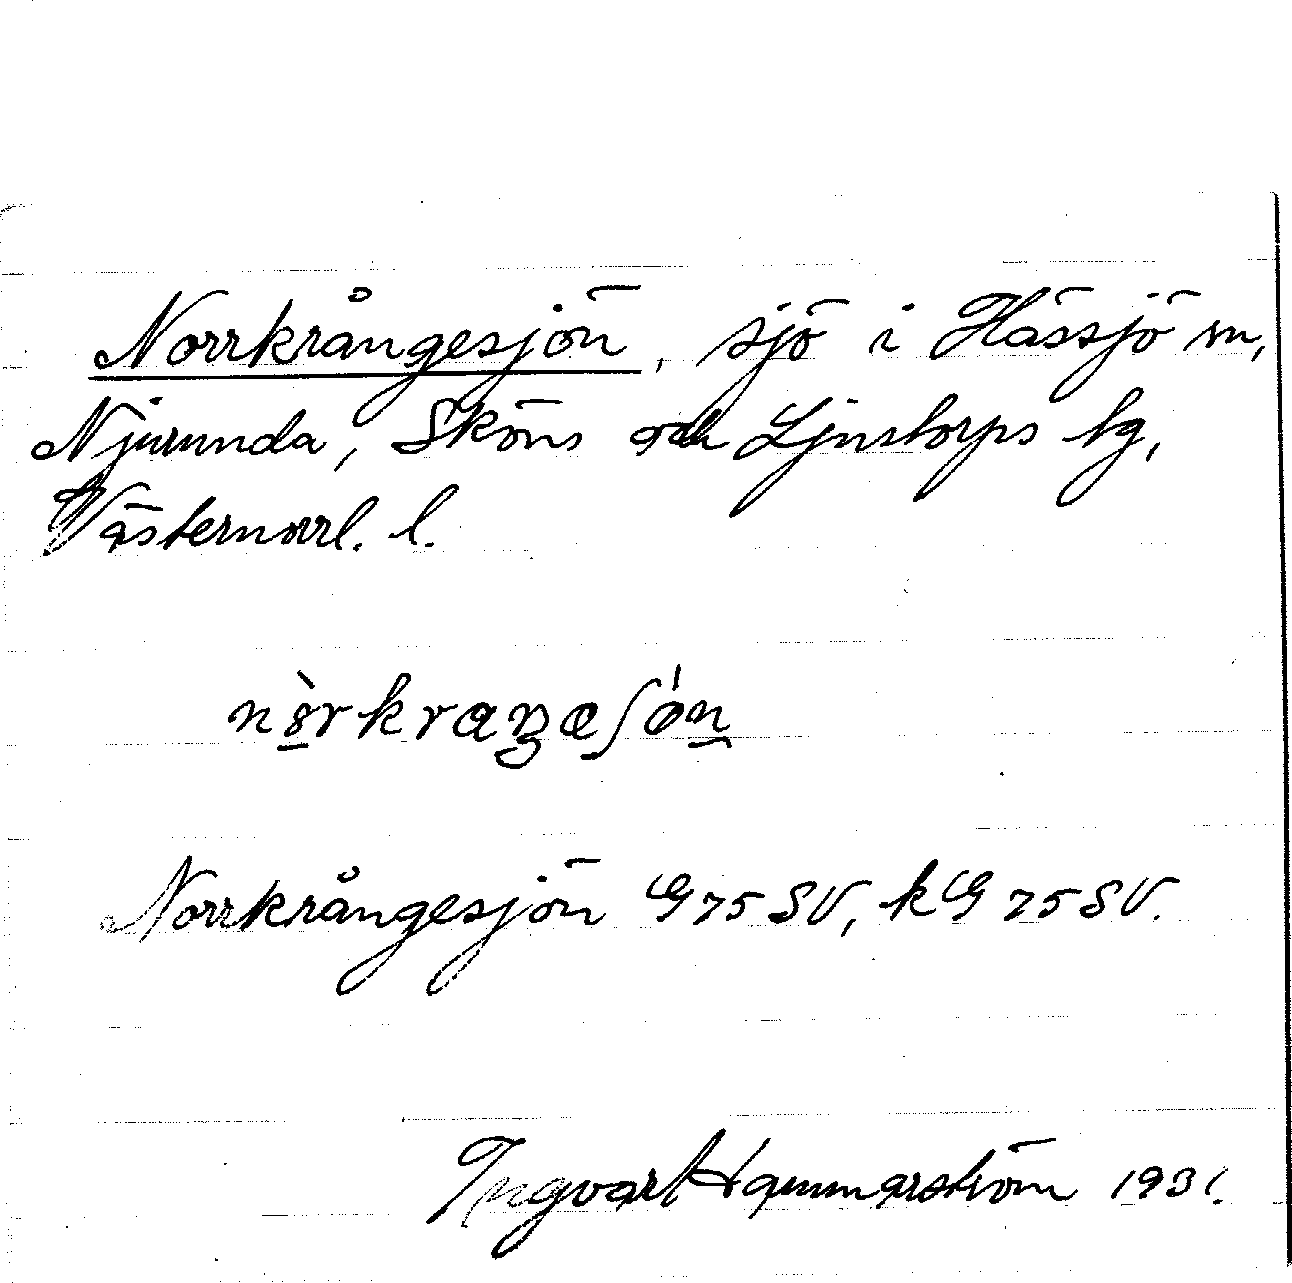 Norrkrångesjön, sjö i Hässjö sn,
Njurunda, Sköns och Ljustorps tg,
Västernorrl. l.
Norrkrångesjön G 75 SV, k G 75 SV.
Ingvar Hammarström 1931.